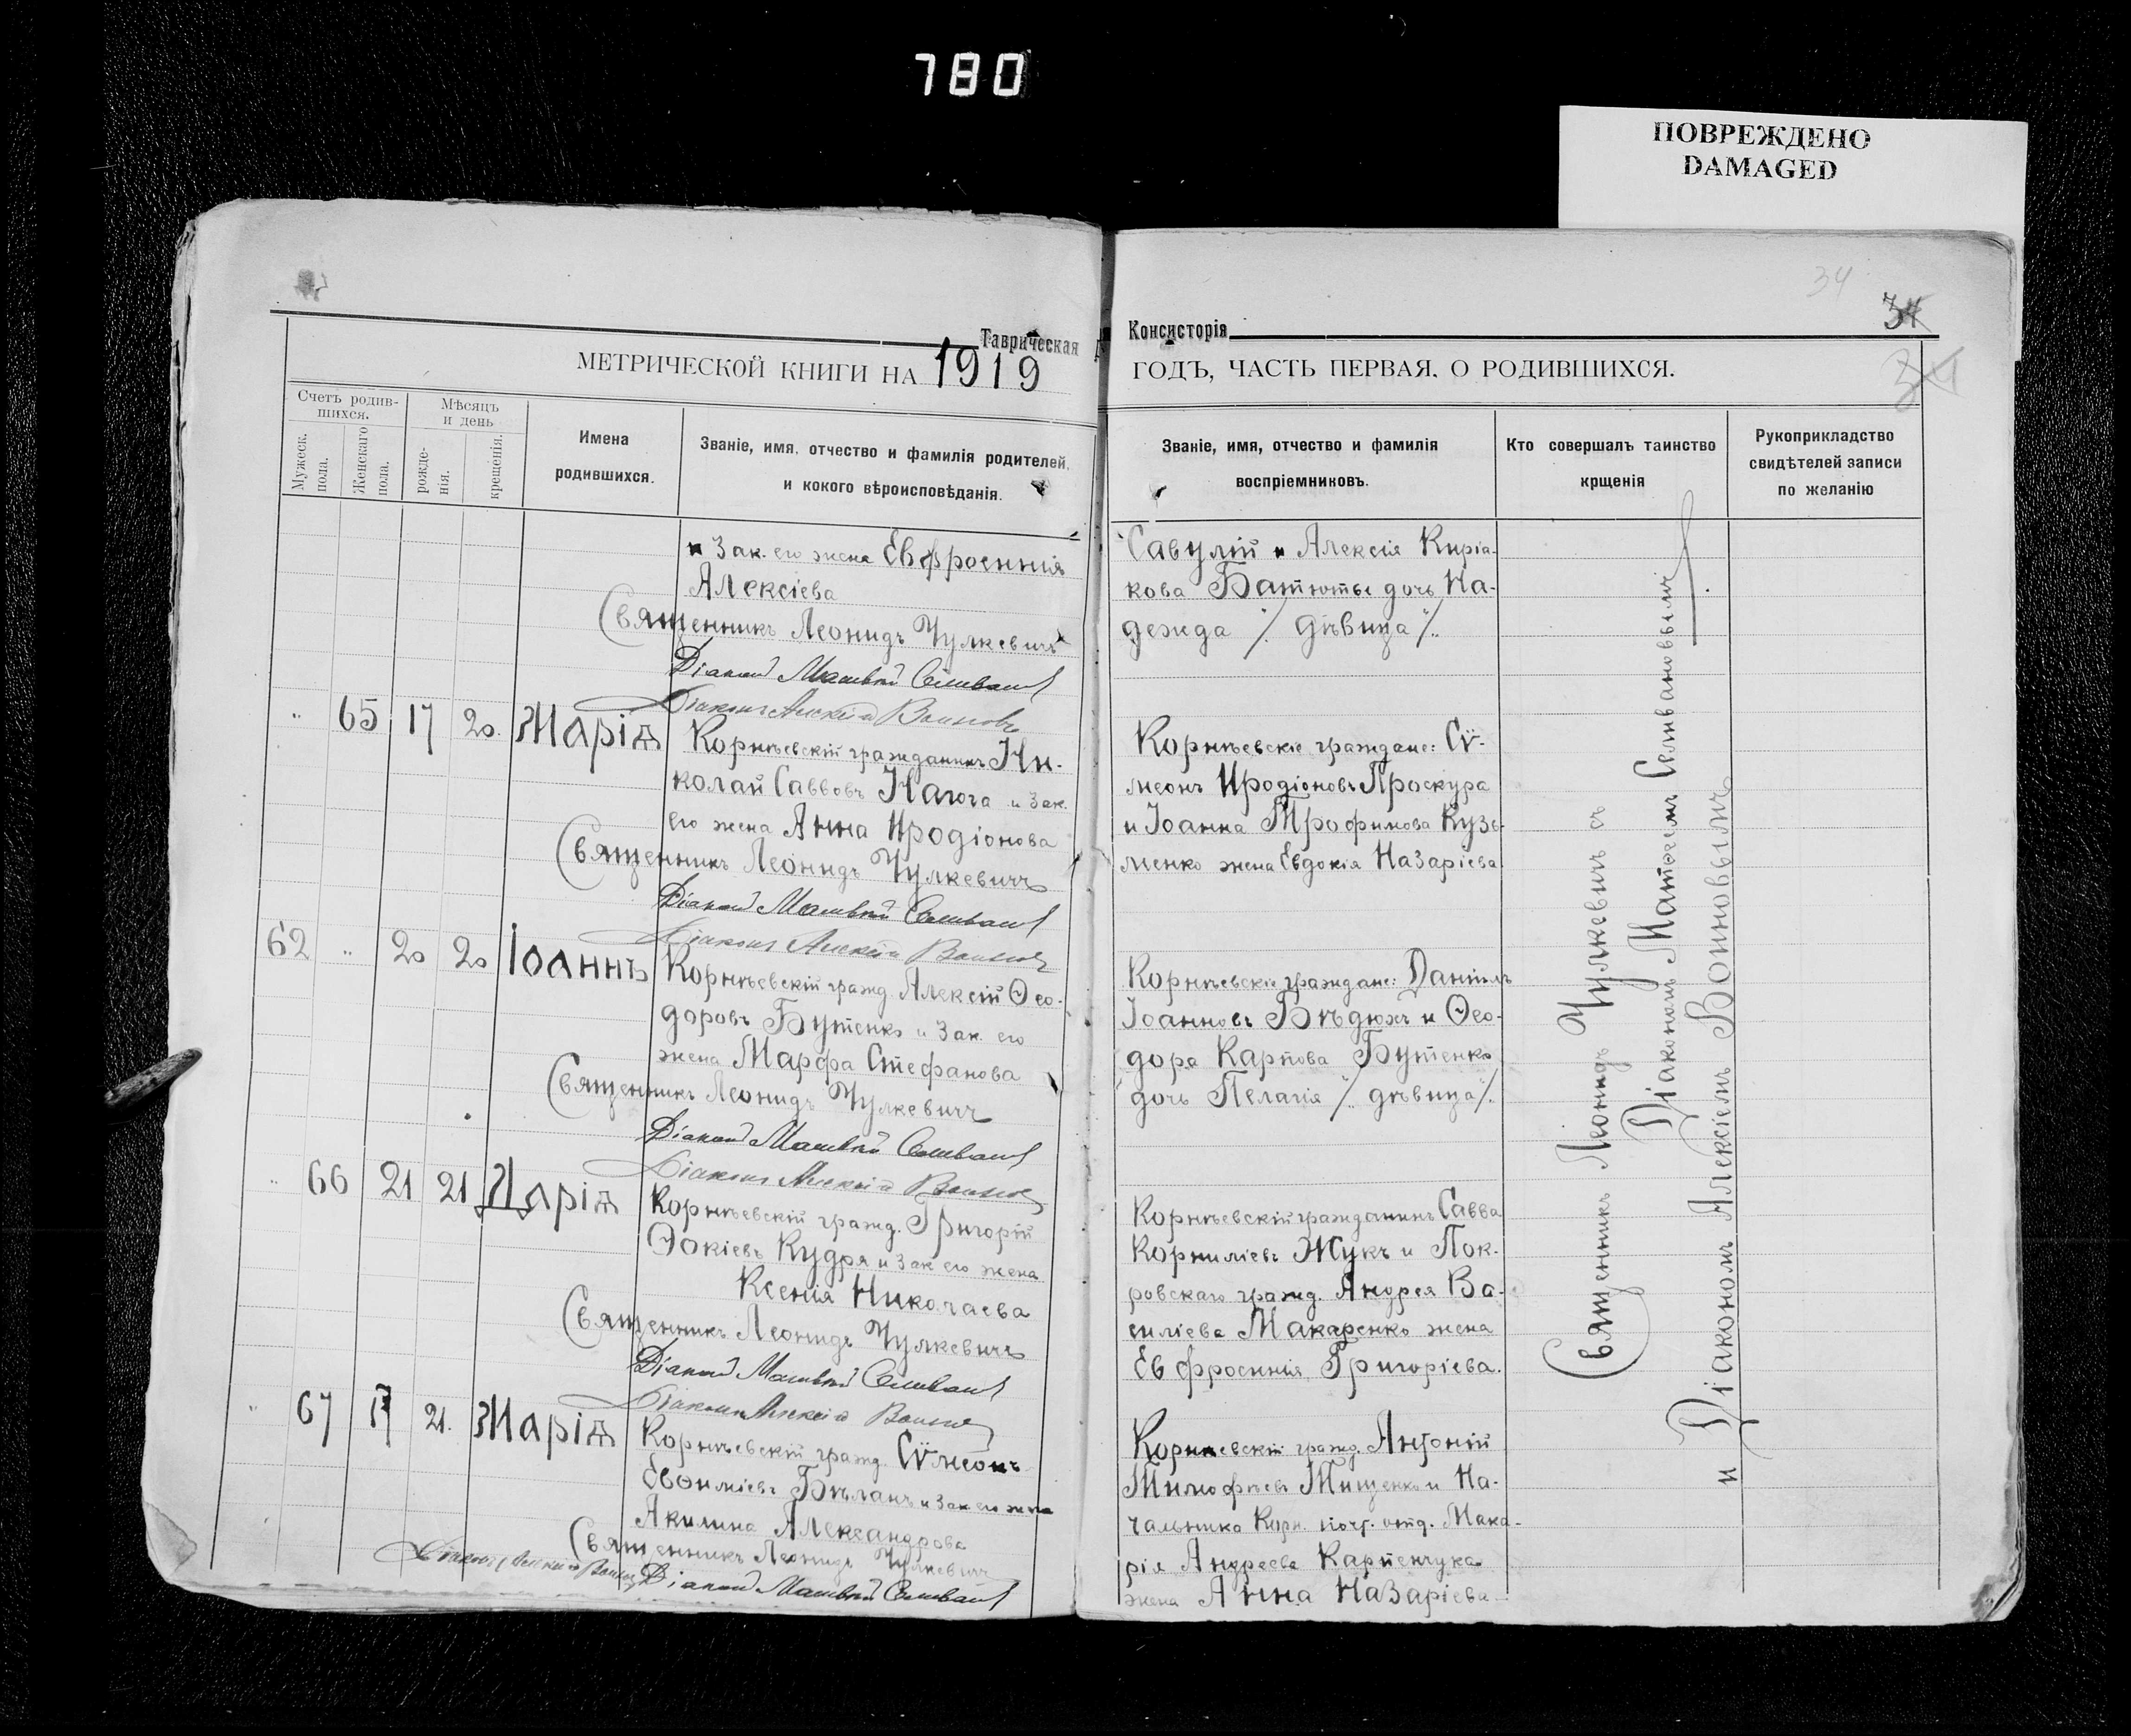 780
ПОВРЕЖДЕНО
DAMAGED
34
34
34
Таврическая Д
Консисторія
МЕТРИЧЕСКОЙ КНИГИ НА 1919
ГОДЪ, ЧАСТЬ ПЕРВАЯ, О РОДИВШИХСЯ.
Счетъ родив-
шихся.
Мѣсяцъ
и день
Мужеск.
пола.
Женскаго
пола.
рожде-
нія.
крещенія.
Имена
родившихся.
Званіе, имя, отчество и фамилія родителей,
и кокого вѣроисповѣданія.
Званіе, имя, отчество и фамилія
воспріемниковъ.
Кто совершалъ таинство
крщенія
Рукоприкладство
свидѣтелей записи
по желанію
и Зак. его жена Евфросинія
Алексіева
Священникъ Леонидъ Чулкевичъ
Діаконъ Матвѣй Селиванов
Діаконъ Алексій Воиновъ
Савулій и Алексія Киріа-
кова Батюты дочь На-
дежда /. дѣвица /.
" 65 17 20. Марія
Корнѣевскій гражданинъ Ни-
колай Саввовъ Нагога и Зак.
его жена Анна Иродіонова
Священникъ Леонидъ Чулкевичъ
Діаконъ Матвѣй Селиванов
Діаконъ Алексій Воинов
Корнѣевскіе граждане: Сѵ-
меонъ Иродіоновъ Проскура
и Іоанна Трофимова Кузь-
менко жена Евдокія Назаріева
62 " 20 20 Іоаннъ
Корнѣевскій гражд. Алексій Ѳео-
доровъ Бутенко и Зак. его
жена Марфа Стефанова
Священникъ Леонидъ Чулкевичъ
Діаконъ Матвѣй Селиванов
Діаконъ Алексій Воинов
Корнѣевскіе граждане: Даніилъ
Іоанновъ Бѣдюхъ и Ѳео-
дора Карпова Бутенко
дочь Пелагія /. дѣвица /.
" 66 21 21 Дарія
Корнѣевскій гражд. Григорій
Ѳокіевъ Кудря и Зак его жена
Ксенія Николаева
Священникъ Леонидъ Чулкевичъ
Діаконъ Матвѣй Селиванов
Діаконъ Алексій Воинов
Корнѣевскій гражданинъ Савва
Корниліевъ Жукъ и Пок-
ровскаго гражд. Андрея Ва-
силіева Макаренко жена
Евфросинія Григоріева.
" 67 17 21. Марія
Корнѣевскій гражд. Сѵмеонъ
Евѳиміевъ Бѣланъ и Зак его жена
Акилина Александрова
Священникъ Леонидъ Чулкевичъ
Діаконъ Алексій Воинов
Діаконъ Матвѣй Селиванов
Корнѣевскій гражд. Антоній
Тимофѣевъ Тищенко и На-
чальника Корн. почт. отд. Мака-
рія Андреева Карпенчука
жена Анна Назаріева
Священникъ Леонидъ Чулкевичъ съ
Діакономъ Матѳеемъ Селивановымъ
и Діакономъ Алексіемъ Воиновымъ